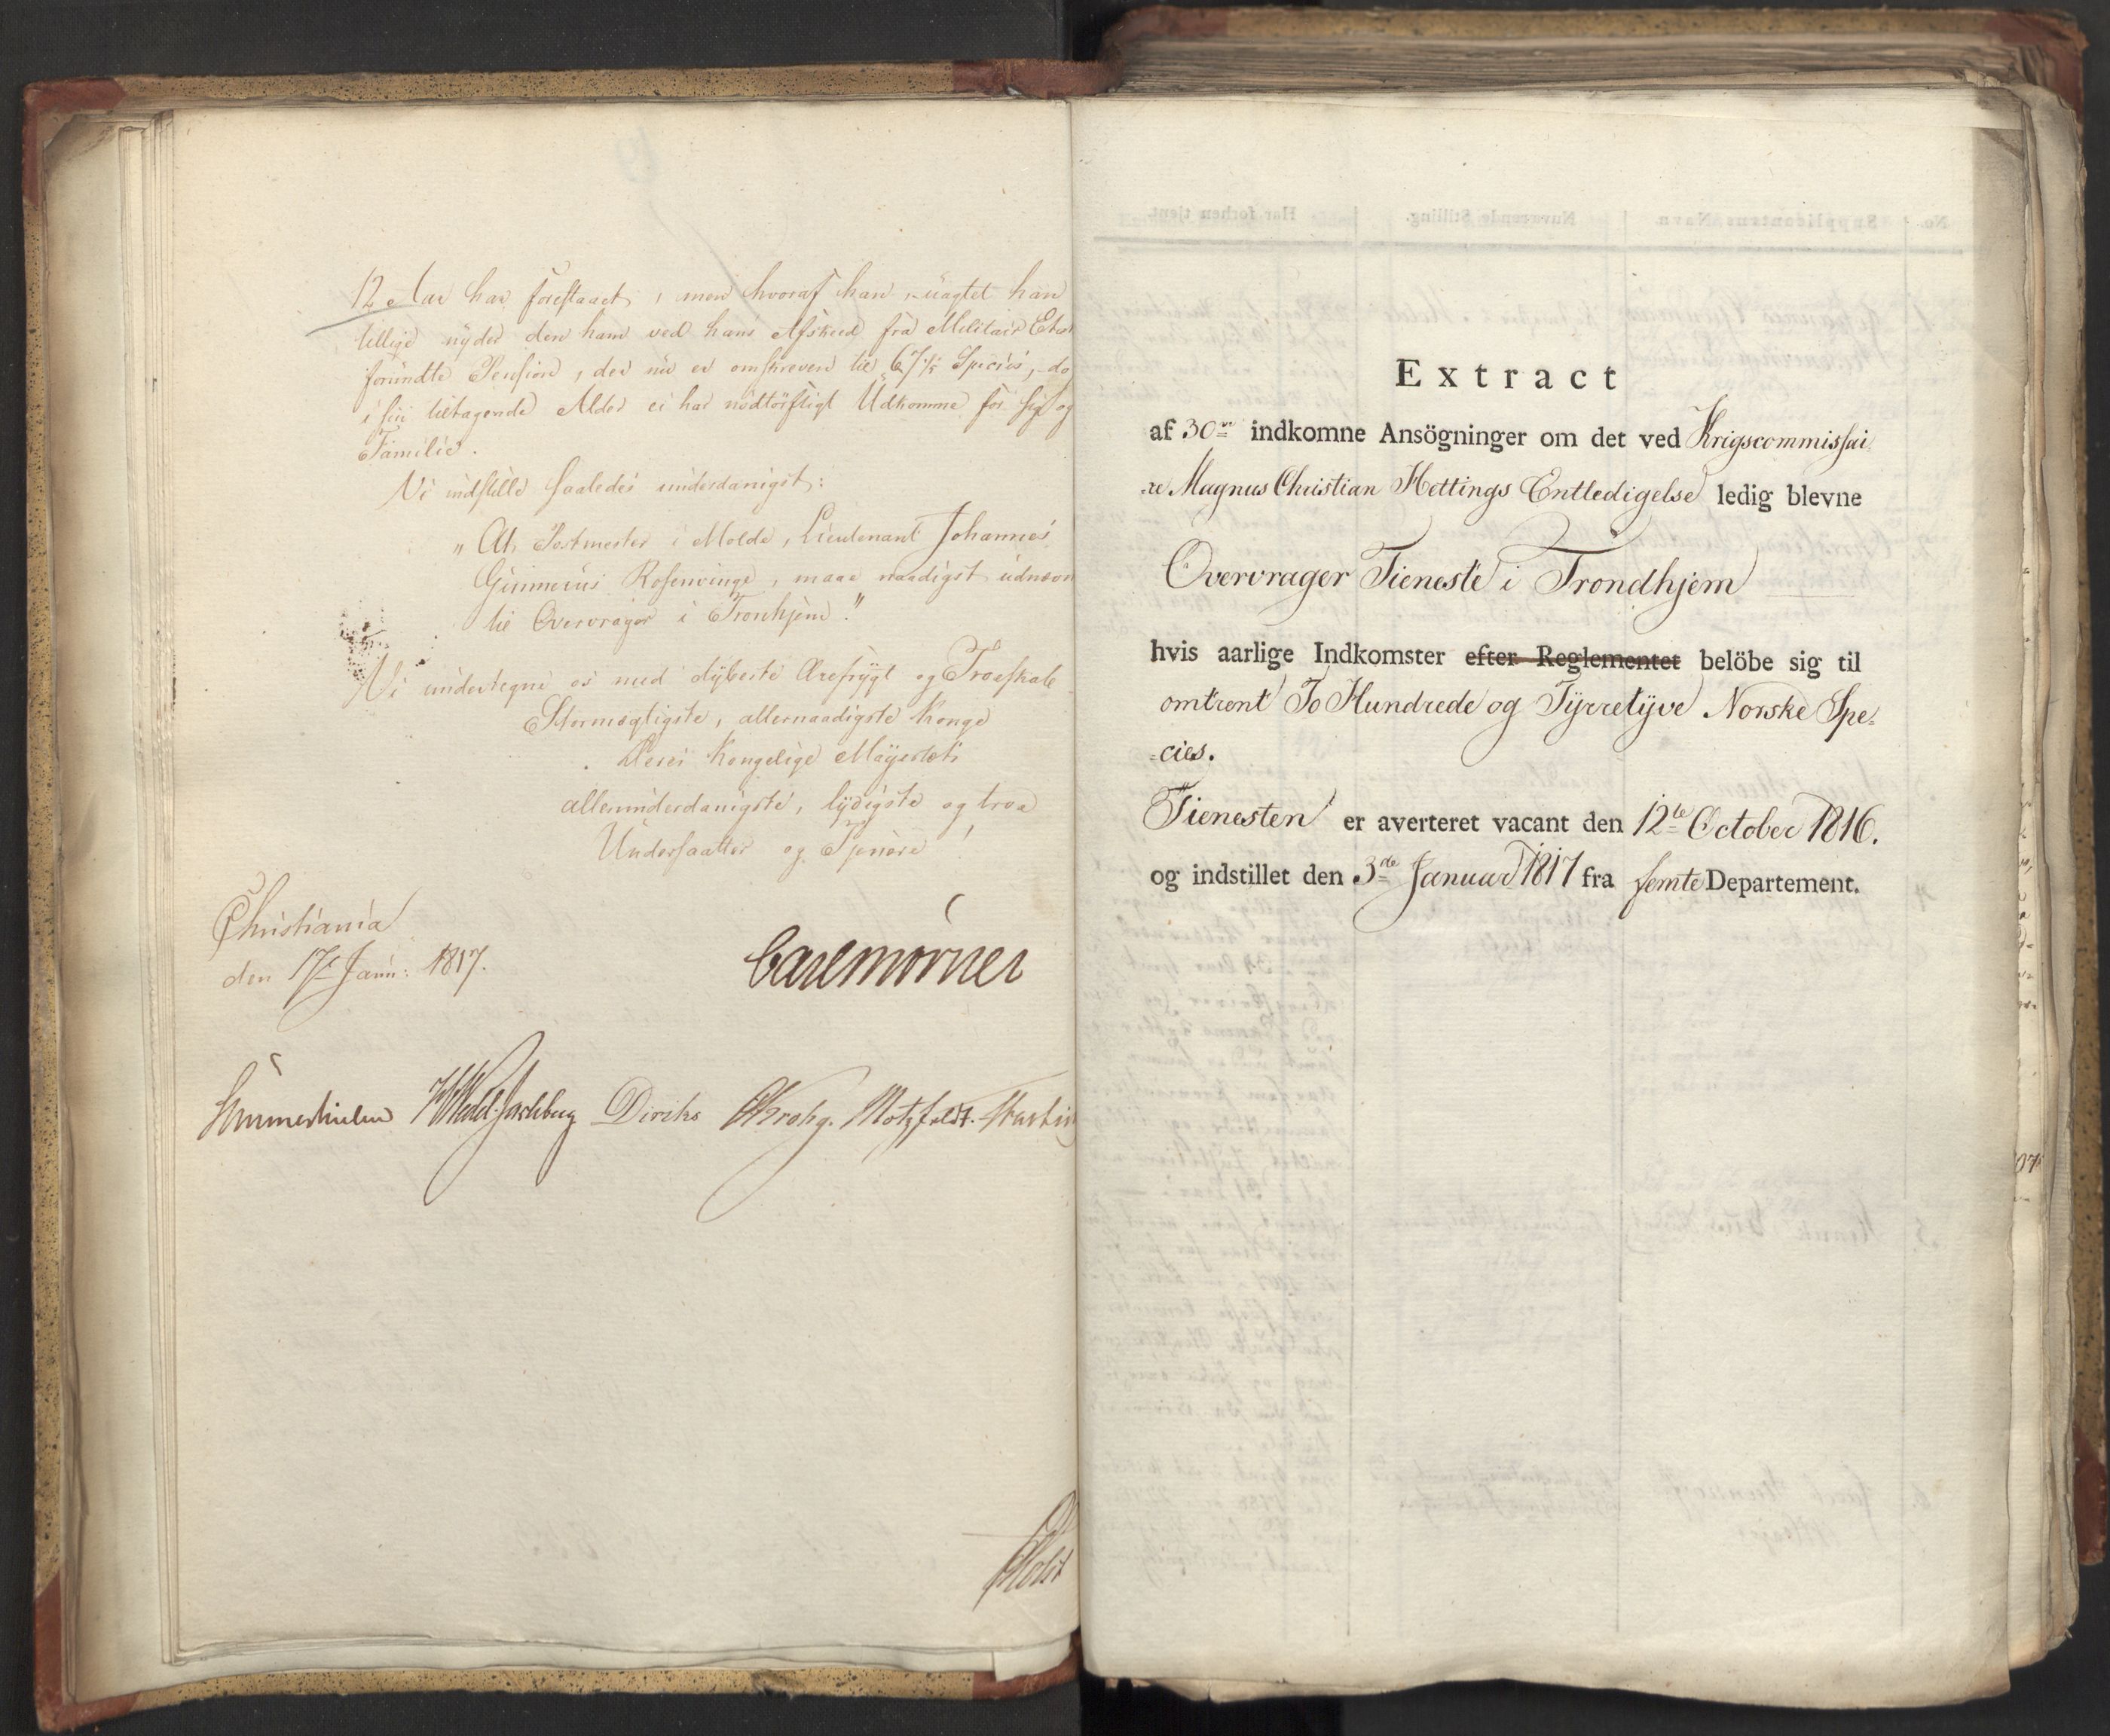 12 Aar har forestaaet, men hvoraf han, uagtet han
tillige nyder den ham ved hans Afskeed fra Militair Etat
forundte Pension, der nu er omskreven til 67 1/5 Species, do
i sin tiltagende Alder ei har nødtörftigt Udkomme for sig og
Familie.
Vi indstille saaledes underdanigst:
„At Postmester i Molde, Lieutenant Johannes
Gunnerus Rosenvinge, maae naadigst udnævn
til Overvrager i Tronhjem."
Vi undertegne os med dybeste Ærefrygt og Troeskab
Stormægtigste, allernaadigste Konge
Deres Kongelige Majestets
allerunderdanigste, lydigste og troe
Undersaatter og Tjenere!
Christiania
den 17 Janu: 1817.
Carl Mörner
Sommerhielm Wedel-Jarlsberg Diriks Krohg. Motzfeldt.
Holst
Extract
af 30ve indkomne Ansögninger om det ved Krigscommissai
re Magnus Christian Hettings Entledigelse ledig blevne
Overvrager Tieneste i Trondhjem
hvis aarlige Indkomster efter Reglementet belöbe sig til
omtrent To Hundrede og Tyrretyve Norske Spe-
-cies.
Tienesten er averteret vacant den 12te October 1816.
og indstillet den 3de Januar 1817 fra femte Departement.